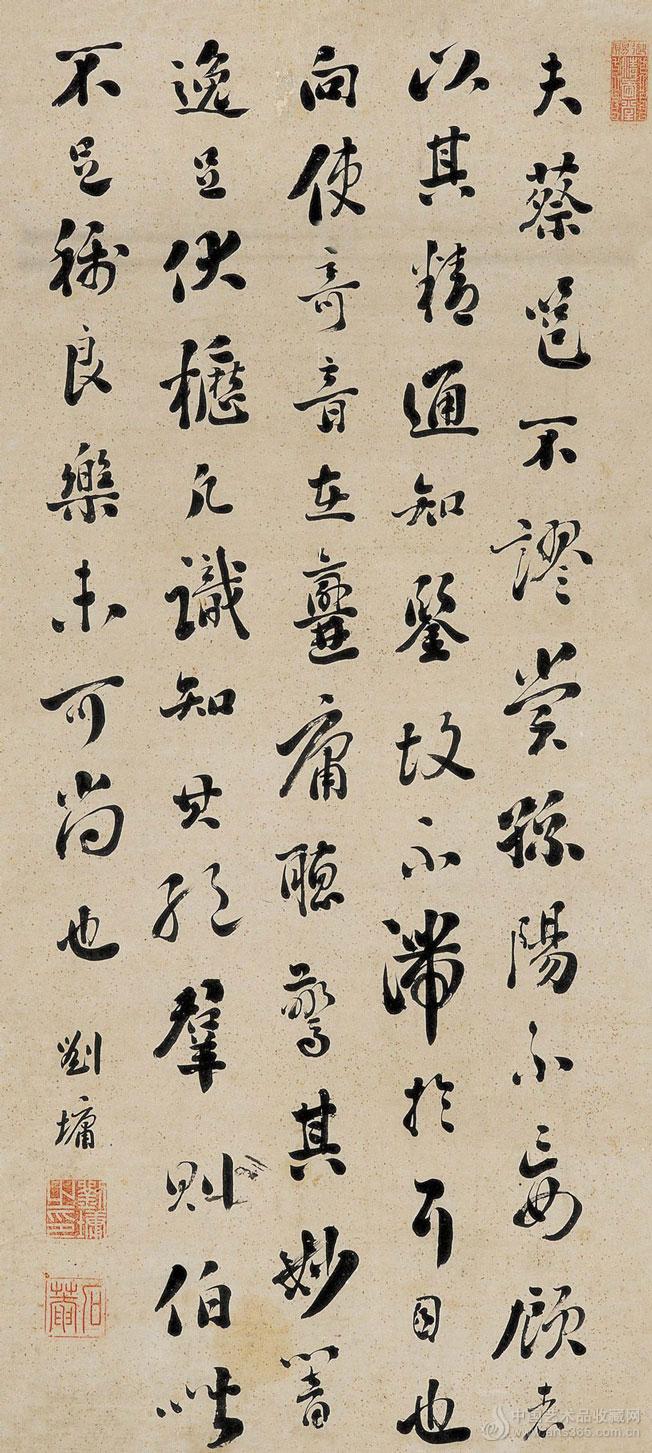 夫蔡邕不謬賞孫陽不妄顧者
以其精通知鑒故不滯於耳目也
向使奇音在爨庸聽驚其妙響
逸足伏櫪凡識知其絕群則伯喈
不足稱良樂未可尚也
劉墉
劉墉之印
石菴
中国艺术品收藏网
www.arts365.com.cn